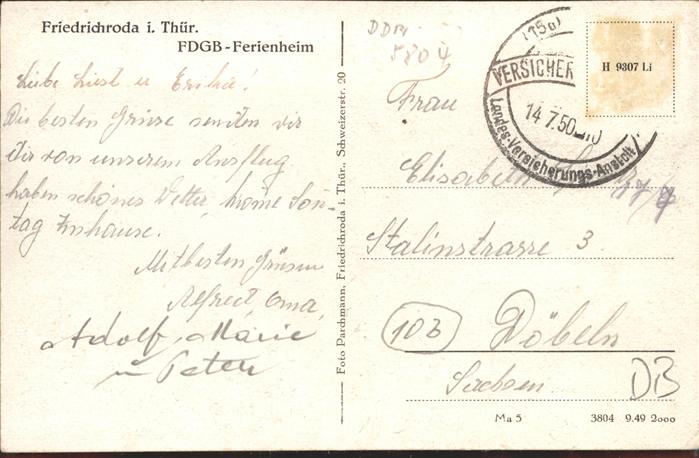 Friedrichroda i. Thür.
FDGB-Ferienheim
Liebe Liesl u Erika!
Die besten Grüsse senden wir
Dir von unserem Ausflug
haben schönes Wetter, komme Son-
tag Zuhause.
Mit besten Grüssen
Alfred, Oma,
Adolf, Marie
u Peter
Foto Parchmann, Friedrichroda i. Thür., Schweizerstr. 20
DDR
5804
(15a)
VERSICHER
14.7.50
Landes-Versicherungs-Anstalt
H 9307 Li
Frau
Elisabeth
Stalinstrasse 3
10b Döbeln
Sachsen
DB
Ma 5
3804 9.49 2000